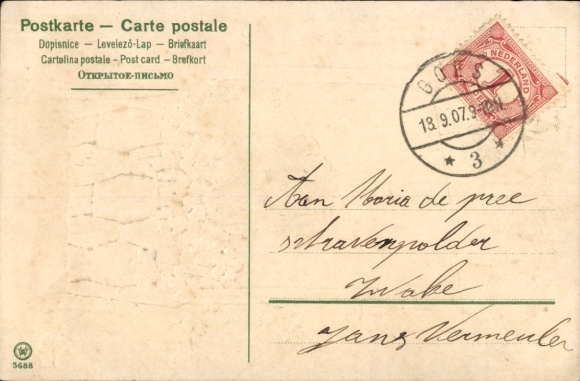 Postkarte — Carte postale
Dopisnice – Levelező-Lap – Briefkaart
Cartolina postale - Post card – Brefkort
Открытое-письмо
NEDERLAND
1
GOES
18.9.07.9-10V
3
Aan Maria de pree
schravenpolder
Wake
Jans Vermeulen
5688